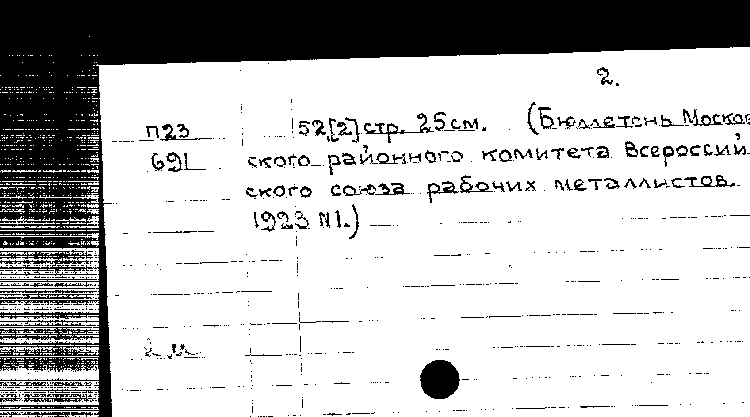 2.
П23 52[2]стр. 25см. (Бюллетень Москов
691 ского районного комитета Всероссий
ского союза рабочих металлистов.
1923 №1.)
2 м